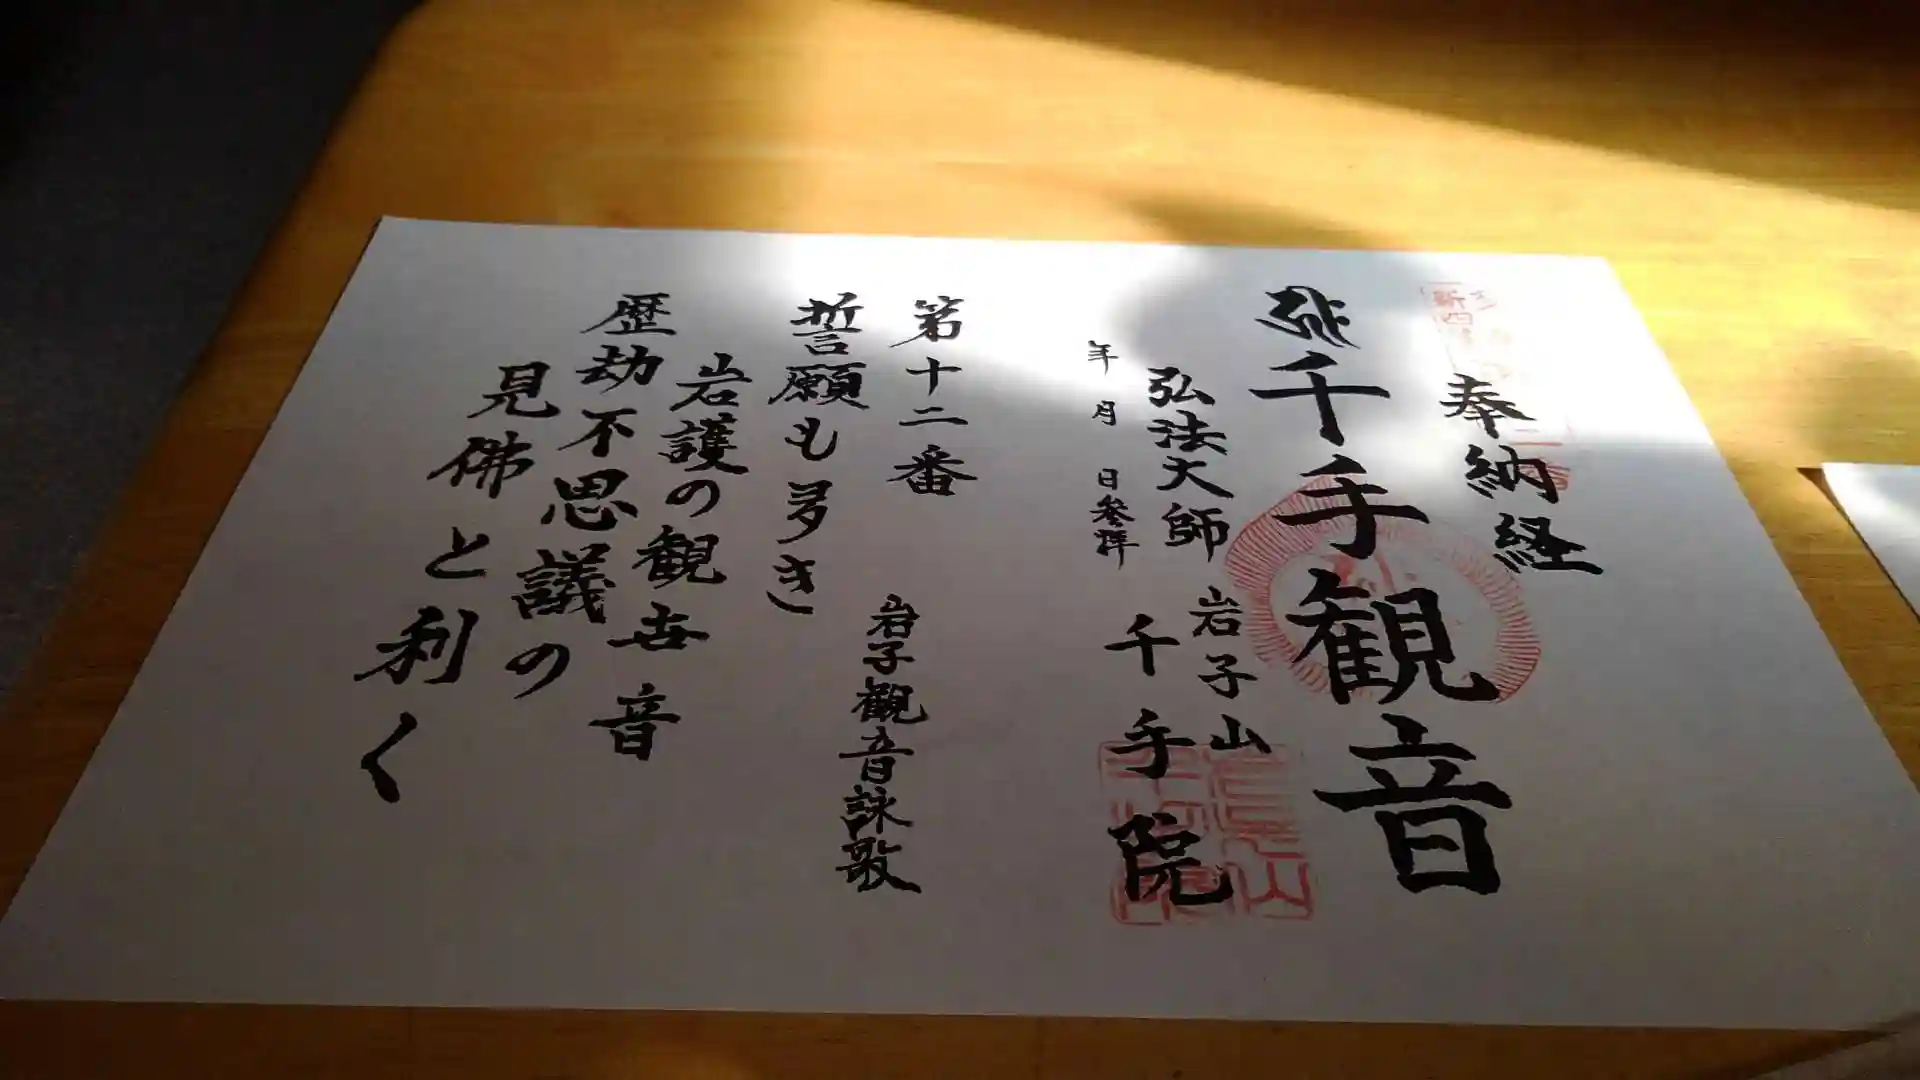 奉納経
千手観音
弘法大師
岩子山
千手院
年 月 日参拝
第十二番
岩子観音詠歌
誓願も多き
岩護の観世音
歴劫不思議の
見佛と利く